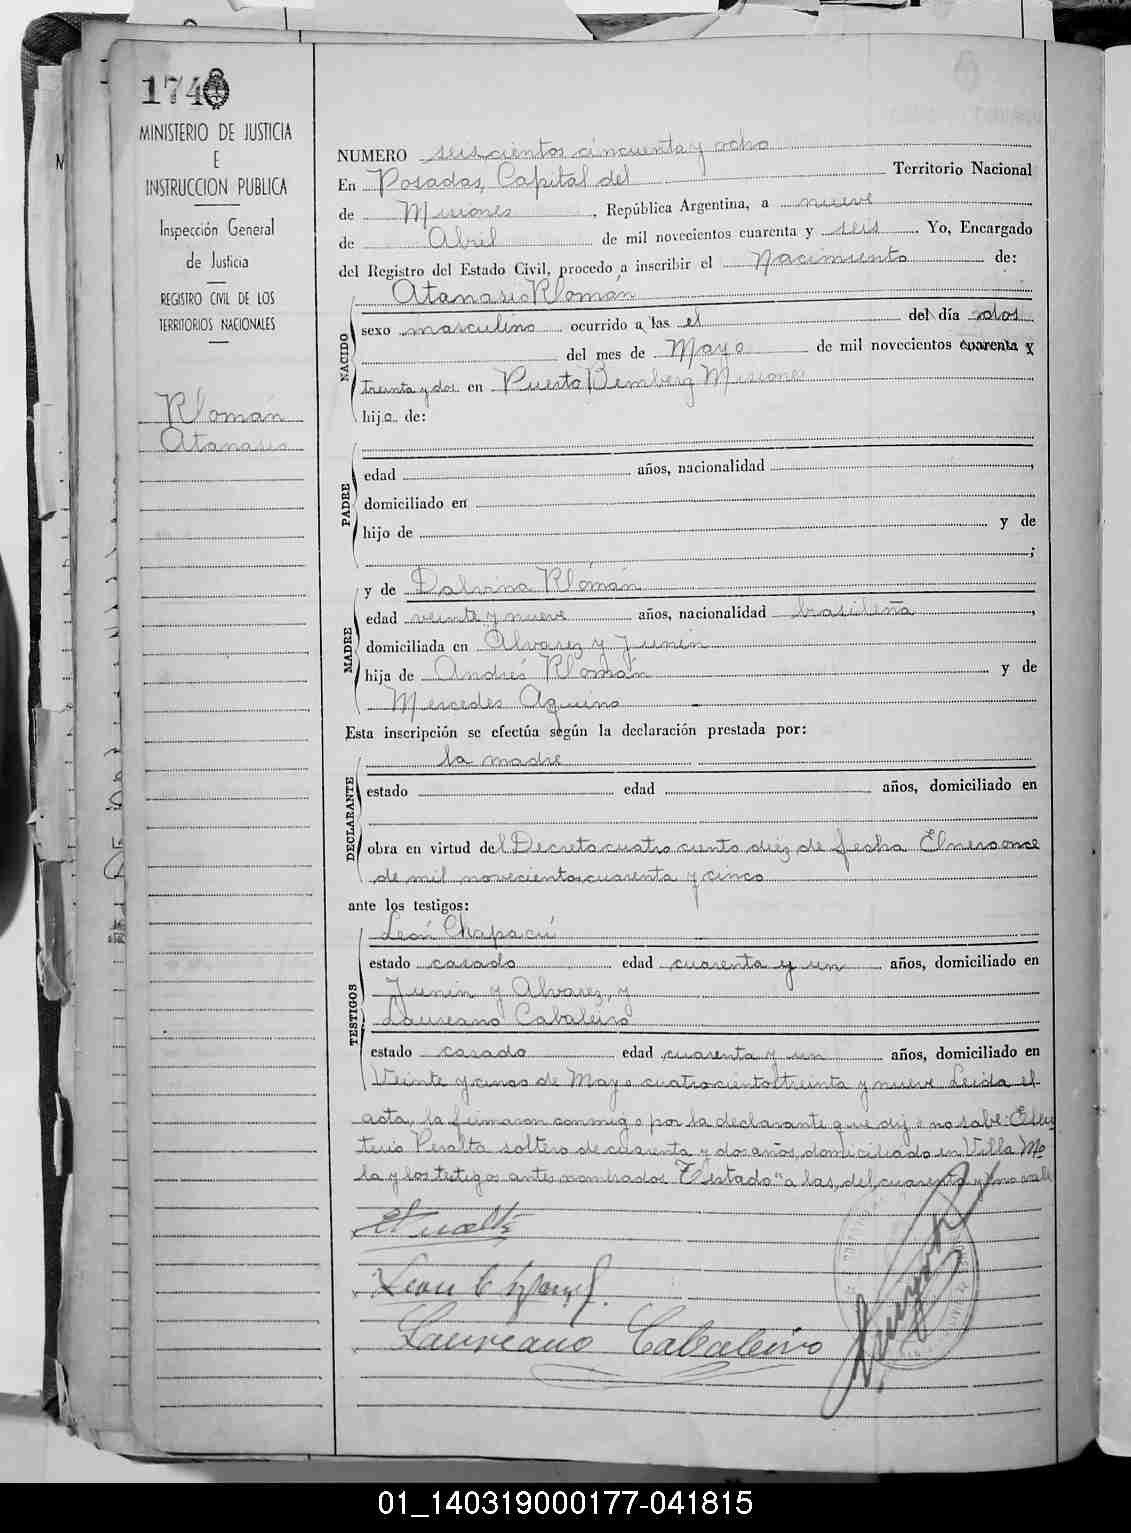 174
MINISTERIO DE JUSTICIA
E
INSTRUCCION PUBLICA
Inspección General
de Justicia
REGISTRO CIVIL DE LOS
TERRITORIOS NACIONALES
Rlomán
Atanasio
NUMERO seiscientos cincuenta y ocho
En Posadas, Capital del Territorio Nacional
de Misiones, República Argentina, a nueve
de Abril de mil novecientos cuarenta y seis. Yo, Encargado
del Registro del Estado Civil, procedo a inscribir el Nacimiento de:
NACIDO
Atanasio Rlomán
sexo masculino ocurrido a las el del día dos
del mes de Mayo de mil novecientos cuarenta y
treinta y dos en Puerto Bemberg Misiones
hijo de:
PADRE
edad años, nacionalidad ,
domiciliado en
hijo de y de
;
MADRE
y de Dalvina Rlomán
edad veinte y nueve años, nacionalidad brasileña,
domiciliada en Alvarez y Junin
hija de Andrés Rlomán y de
Mercedes Aquino
Esta inscripción se efectúa según la declaración prestada por:
DECLARANTE
la madre
estado edad años, domiciliado en
obra en virtud del Decreto cuatro ciento diez de fecha Elnero once
de mil novecientos cuarenta y cinco
ante los testigos:
TESTIGOS
León Chapacú
estado casado edad cuarenta y un años, domiciliado en
Junin y Alvarez, y
Laureano Cabaleiro
estado casado edad cuarenta y un años, domiciliado en
Veinte y cinco de Mayo cuatrocientos treinta y nueve Leida el
acta, la firmaron conmigo por la declarante que dijo no sabe: Eleu
terio Peralta soltero de cuarenta y dos años, domiciliado en Villa Mo
la y los testigos antes nombrados Testado "a las, del cuarenta y" no vale
Laureano Cabaleiro
01_140319000177-041815